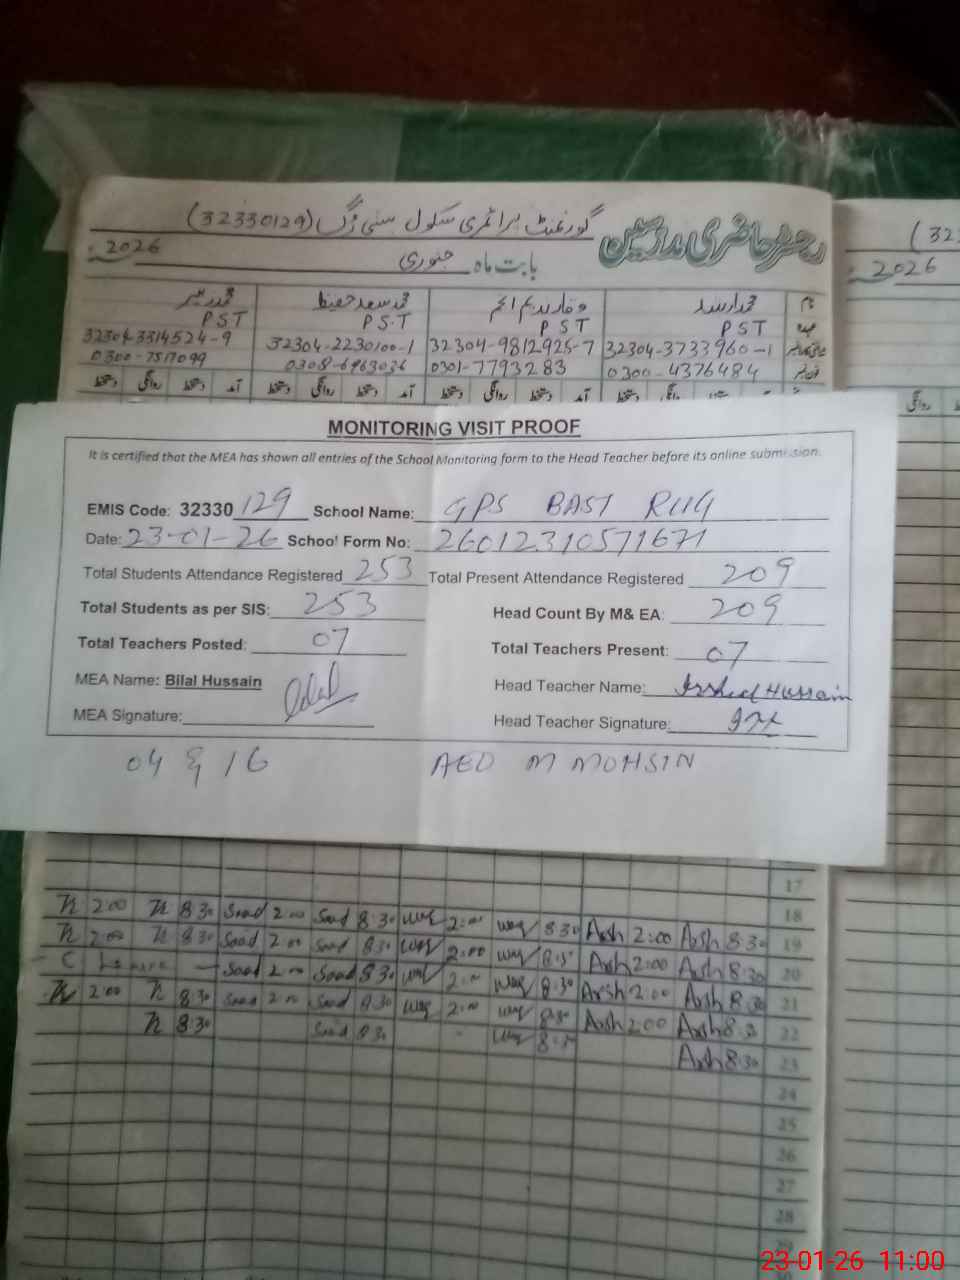 گورنمنٹ پرائمری سکول سنی رگ (32330129) رجسٹر حاضری مدرسین
بابت ماہ جنوری 2026
2026
نام محمد ارشد وقار ندیم انجم محمد سعد حفیظ محمد زبیر
عہدہ PST PST PST PST
32304-3733960-1 32304-9812925-7 32304-2230100-1 32304-3314524-9
0300-4376484 0301-7793283 0308-6963036 0300-7517099
آمد دستخط روانگی دستخط آمد دستخط روانگی دستخط
MONITORING VISIT PROOF
It is certified that the MEA has shown all entries of the School Monitoring form to the Head Teacher before its online submission.
EMIS Code: 32330 129 School Name: GPS BAST RUG
Date: 23-01-26 School Form No: 26012310571671
Total Students Attendance Registered 253 Total Present Attendance Registered 209
Total Students as per SIS: 253 Head Count By M& EA: 209
Total Teachers Posted: 07 Total Teachers Present: 07
MEA Name: Bilal Hussain Head Teacher Name: Arshad Hussain
MEA Signature: Head Teacher Signature:
04 & 16 AEO M MOHSIN
17
2:00 8:30 Saad 2:00 Saad 8:30 Waq 2:00 Waq 8:30 Arsh 2:00 Arsh 8:30 18
2:00 8:30 Saad 2:00 Saad 8:30 Waq 2:00 Waq 8:30 Arsh 2:00 Arsh 8:30 19
C Leave Saad 2:00 Saad 8:30 Waq 2:00 Waq 8:30 Arsh 2:00 Arsh 8:30 20
2:00 8:30 Saad 2:00 Saad 8:30 Waq 2:00 Waq 8:30 Arsh 2:00 Arsh 8:30 21
8:30 Saad 8:30 Waq 8:30 Arsh 8:30 22
23
24
25
26
27
28
29
23-01-26 11:00